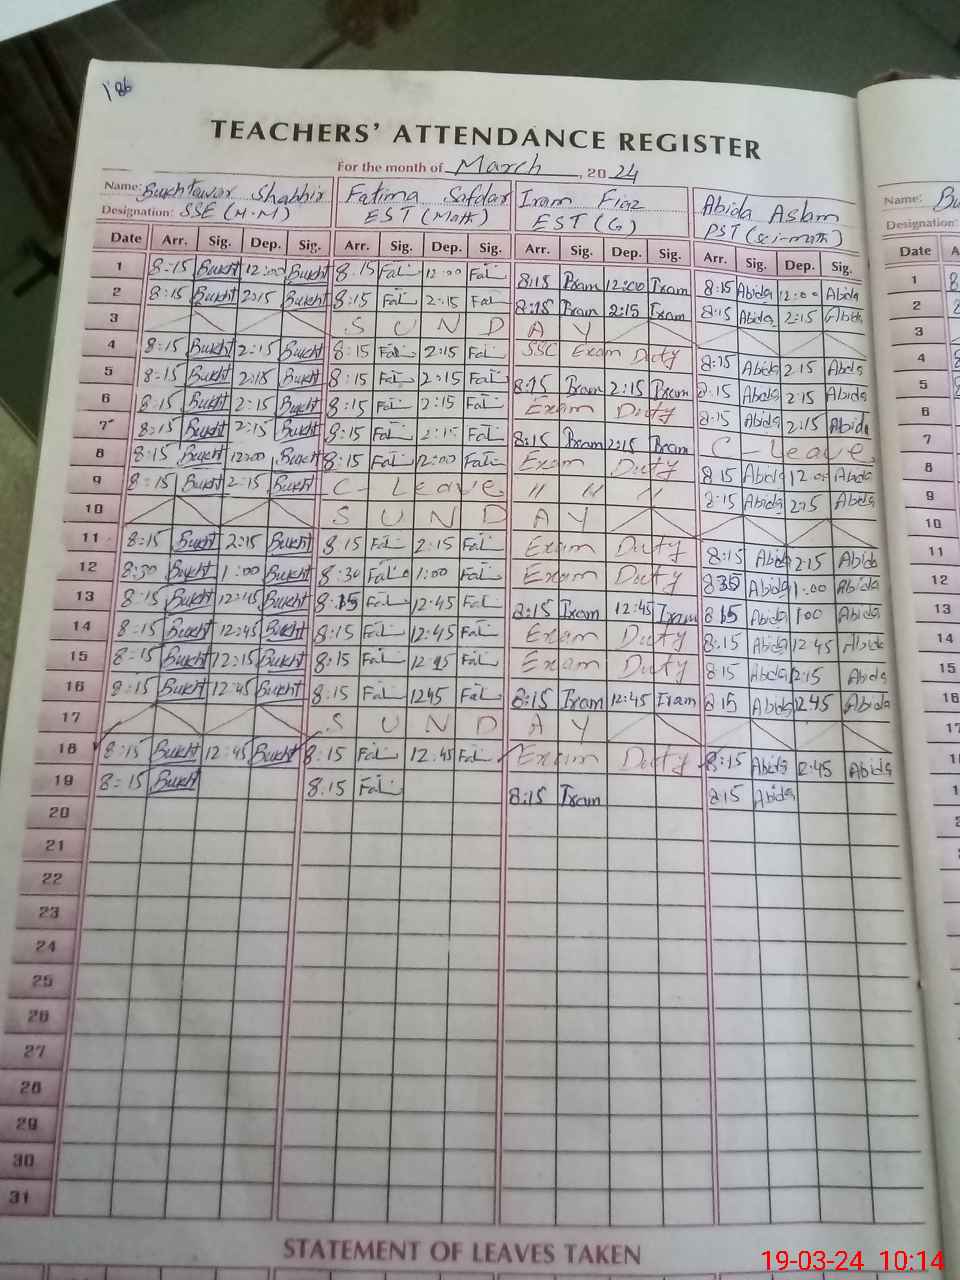 186
TEACHERS' ATTENDANCE REGISTER
For the month of March, 2024
Name: Bukhtawar Shabbir Fatima Safdar Iram Fiaz Abida Aslam Name: Bu
Designation: SSE (H.M) EST (Math) EST (G) PST (sci-math) Designation
Date Arr. Sig. Dep. Sig. Arr. Sig. Dep. Sig. Arr. Sig. Dep. Sig. Arr. Sig. Dep. Sig. Date
1 8:15 Bukht 12:00 Bukht 8:15 Fati 12:00 Fati 8:15 Iram 12:00 Iram 8:15 Abida 12:00 Abida 1
2 8:15 Bukht 2:15 Bukht 8:15 Fati 2:15 Fati 8:15 Iram 2:15 Iram 8:15 Abida 2:15 Abida 2
3 S U N D A Y 3
4 8:15 Bukht 2:15 Bukht 8:15 Fati 2:15 Fati SSC Exam Duty 8:15 Abida 2:15 Abida 4
5 8:15 Bukht 2:15 Bukht 8:15 Fati 2:15 Fati 8:15 Iram 2:15 Iram 8:15 Abida 2:15 Abida 5
6 8:15 Bukht 2:15 Bukht 8:15 Fati 2:15 Fati Exam Duty 8:15 Abida 2:15 Abida 6
7 8:15 Bukht 2:15 Bukht 8:15 Fati 2:15 Fati 8:15 Iram 2:15 Iram C-Leave 7
8 8:15 Bukht 12:00 Bukht 8:15 Fati 12:00 Fati Exam Duty 8:15 Abida 12:00 Abida 8
9 8:15 Bukht 2:15 Bukht C-Leave " " " 8:15 Abida 2:15 Abida 9
10 S U N D A Y 10
11 8:15 Bukht 2:15 Bukht 8:15 Fati 2:15 Fati Exam Duty 8:15 Abida 2:15 Abida 11
12 8:30 Bukht 1:00 Bukht 8:30 Fati 1:00 Fati Exam Duty 8:30 Abida 1:00 Abida 12
13 8:15 Bukht 12:45 Bukht 8:15 Fati 12:45 Fati 8:15 Iram 12:45 Iram 8:15 Abida 1:00 Abida 13
14 8:15 Bukht 12:45 Bukht 8:15 Fati 12:45 Fati Exam Duty 8:15 Abida 12:45 Abida 14
15 8:15 Bukht 12:15 Bukht 8:15 Fati 12:45 Fati Exam Duty 8:15 Abida 2:15 Abida 15
16 8:15 Bukht 12:45 Bukht 8:15 Fati 12:45 Fati 8:15 Iram 12:45 Iram 8:15 Abida 12:45 Abida 16
17 S U N D A Y 17
18 8:15 Bukht 12:45 Bukht 8:15 Fati 12:45 Fati Exam Duty 8:15 Abida 12:45 Abida
19 8:15 Bukht 8:15 Fati 8:15 Iram 8:15 Abida
20
21
22
23
24
25
26
27
28
29
30
31
STATEMENT OF LEAVES TAKEN
19-03-24 10:14